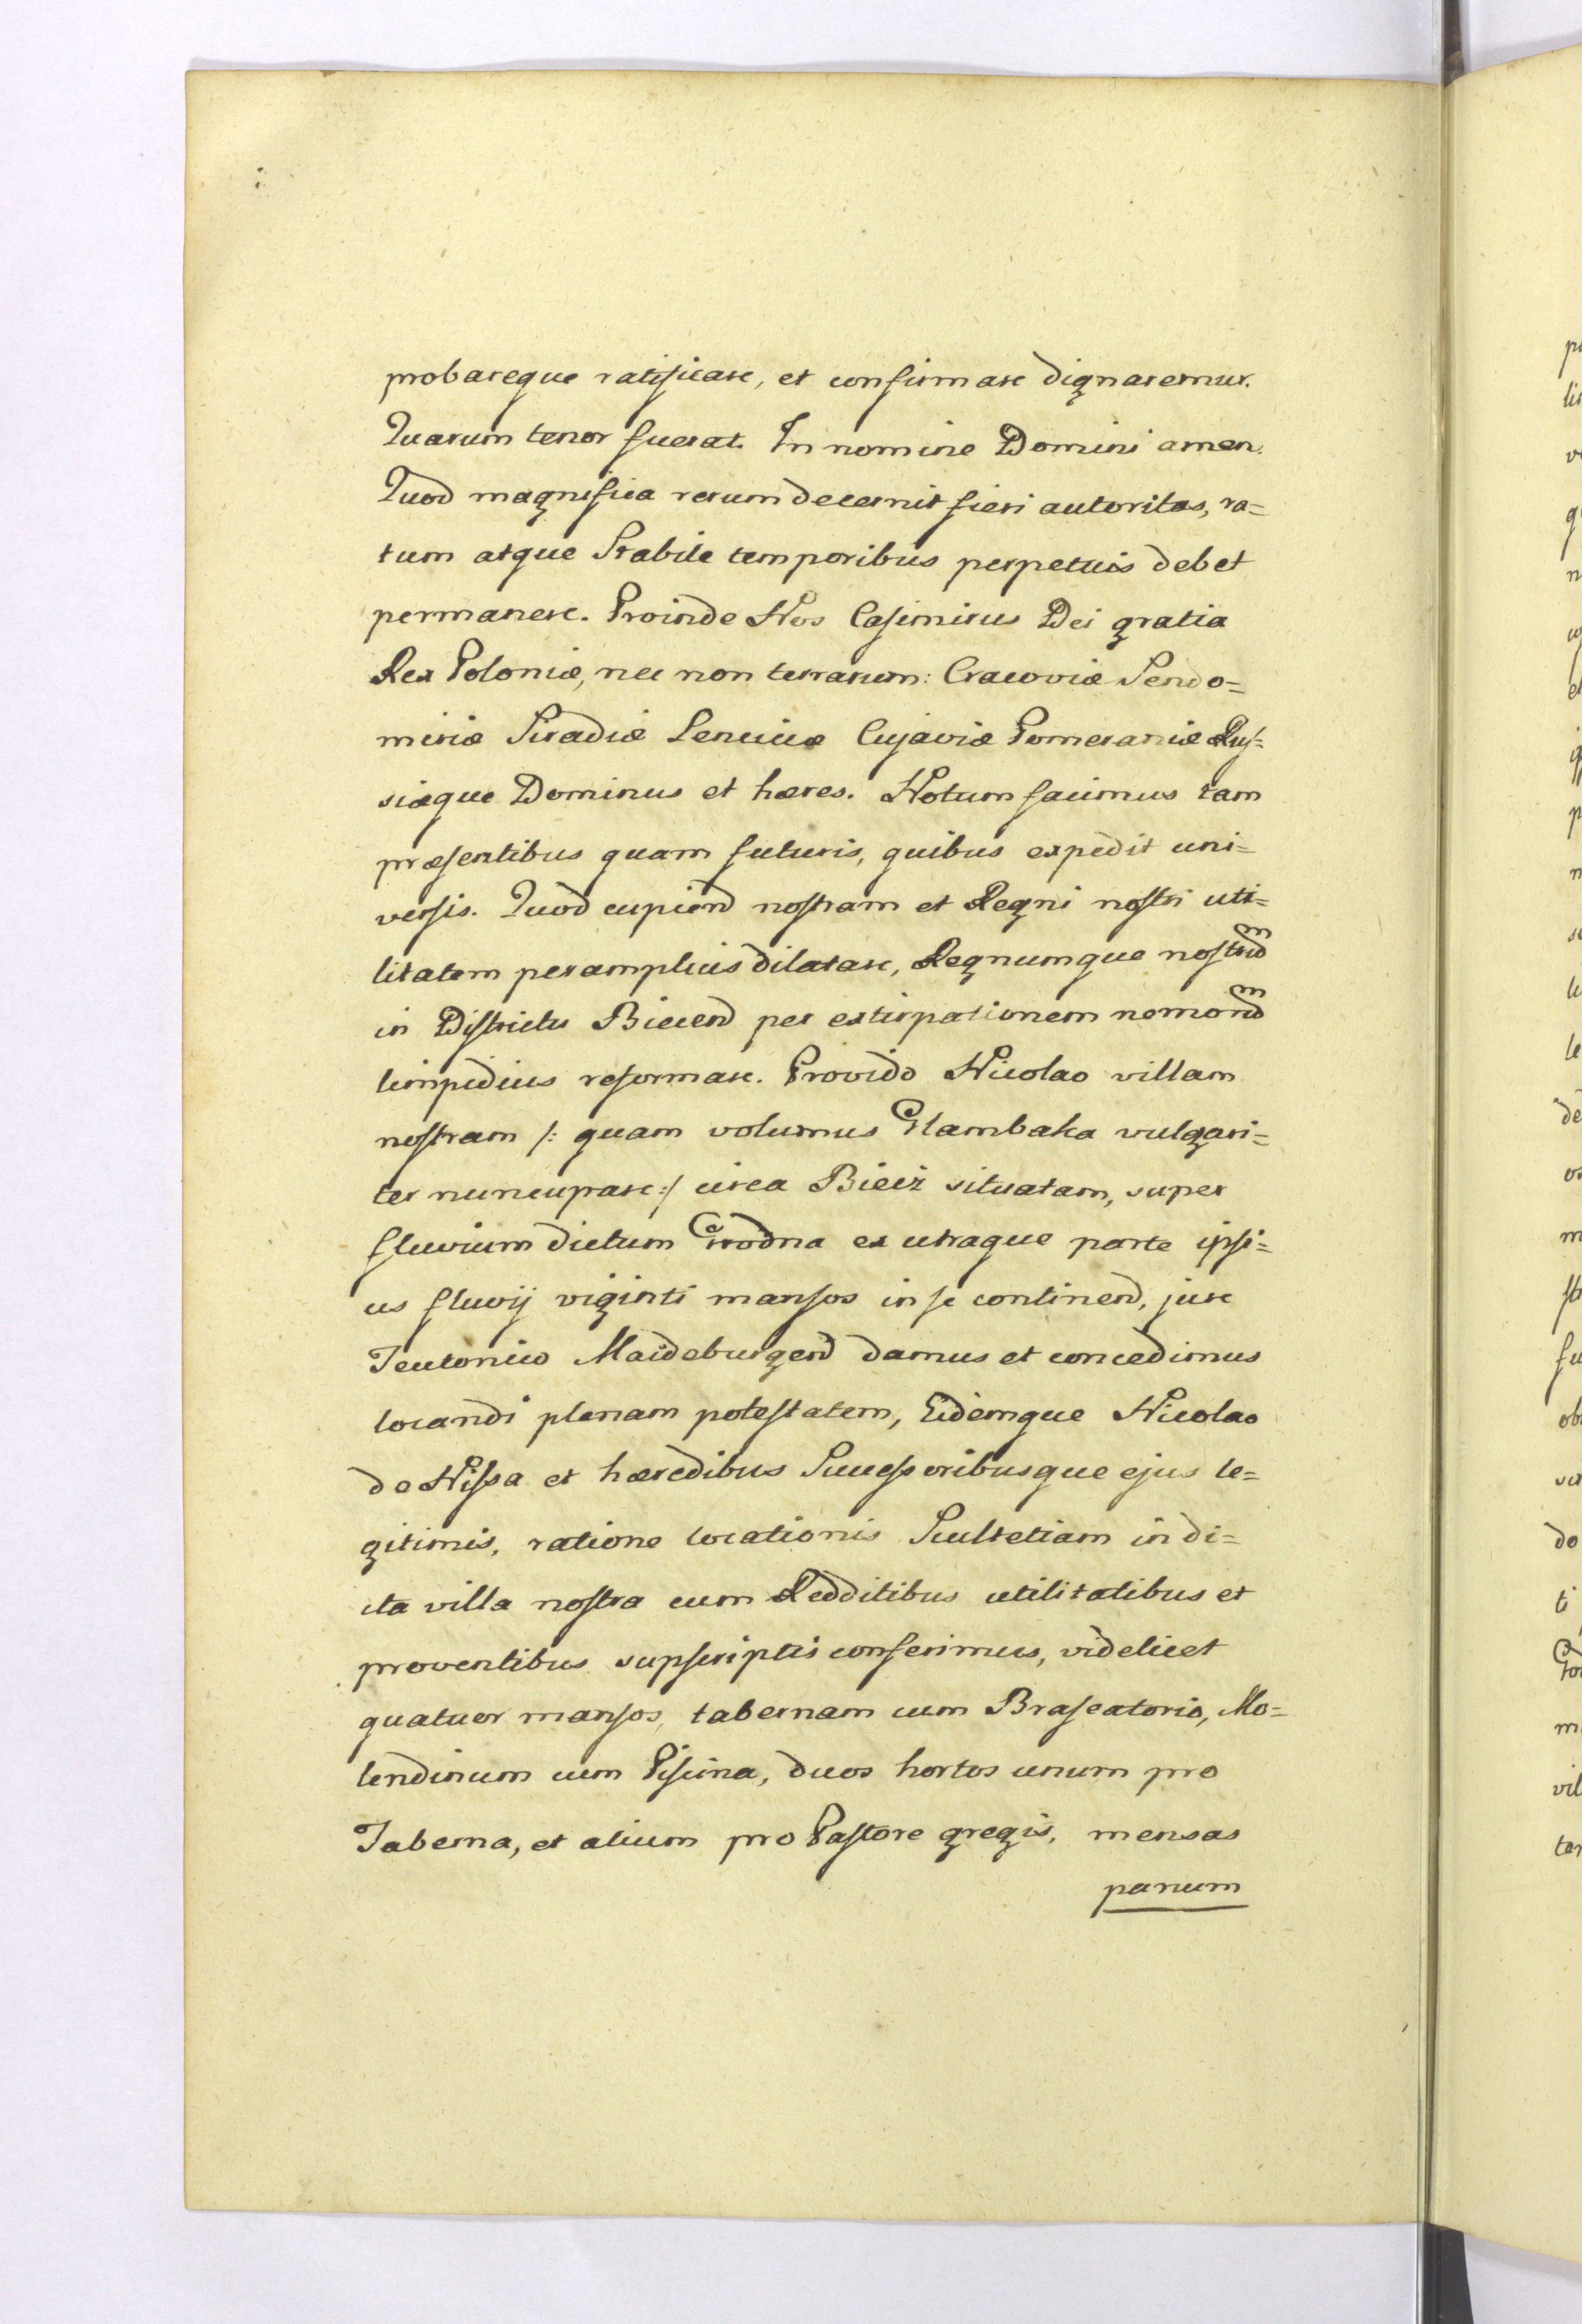 probareque ratificare, et confirmare dignaremur.
Quarum tenor fuerat. In nomine Domini amen.
Quod magnifica rerum decernit fieri autoritas, ra=
tum atque Stabile temporibus perpetuis debet
permanere. Proinde Nos Casimirus Dei gratia
Rex Poloniæ, nec non terrarum: Cracoviæ Sendo=
miriæ Siradiæ Lenciciæ Cujaviæ Pomeraniæ Rus=
siæque Dominus et hæres. Notum facimus tam
præsentibus quam futuris, quibus expedit uni=
versis. Quod cupiend nostram et Regni nostri uti=
litatem peramplius dilatare, Regnumque nostrum
in Districtu Biecend per extirpationem nemorum
limpidius reformare. Provido Nicolao villam
nostram /: quam volumus Glambaka vulgari=
ter nuncupare :/ circa Biecz situatam, super
fluvium dictum Grodna ex utraque parte ipsi=
us fluvij viginti mansos in se continend, jure
Teutonico Maideburgend damus et concedimus
locandi plenam potestatem, Eidemque Nicolao
de Nissa et hæredibus Successoribusque ejus le=
gitimis, ratione locationis Scultetiam in di=
cta villa nostra cum Redditibus utilitatibus et
proventibus supscriptis conferimus, videlicet
quatuor mansos, tabernam cum Braseatorio, Mo=
lendinum cum Piscina, duos hortos unum pro
Taberna, et alium pro Pastore gregis, mensas
panum